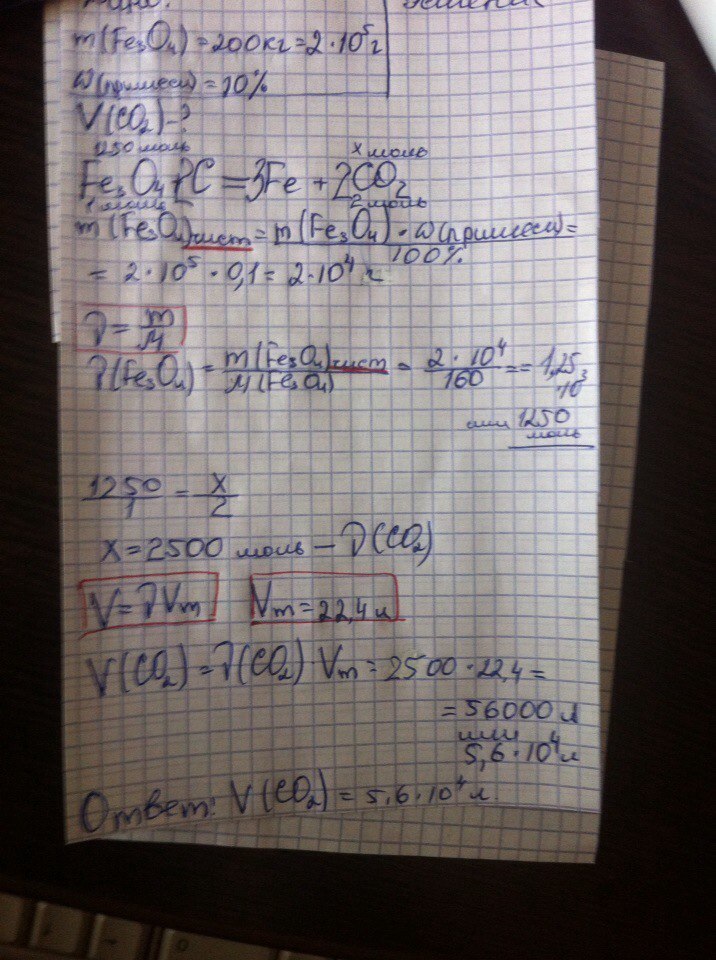 Решение
m(Fe₃O₄) = 200кг = 2·10⁵г
ω(примеси) = 10%
V(CO₂) - ?
1250 моль x моль
Fe₃O₄ + 2C = 3Fe + 2CO₂
1 моль 2 моль
m(Fe₃O₄)чист = m(Fe₃O₄)·ω(примеси) =
100%
= 2·10⁵·0,1 = 2·10⁴ г
ν = m/M
ν(Fe₃O₄) = m(Fe₃O₄)чист / M(Fe₃O₄) = 2·10⁴ / 160 == 1,25·10³
или 1250
моль
1250/1 = x/2
x = 2500 моль – ν(CO₂)
V = νVm Vm = 22,4 л
V(CO₂) = ν(CO₂)·Vm = 2500·22,4 =
= 56000 л
или
5,6·10⁴ л
Ответ: V(CO₂) = 5,6·10⁴ л.